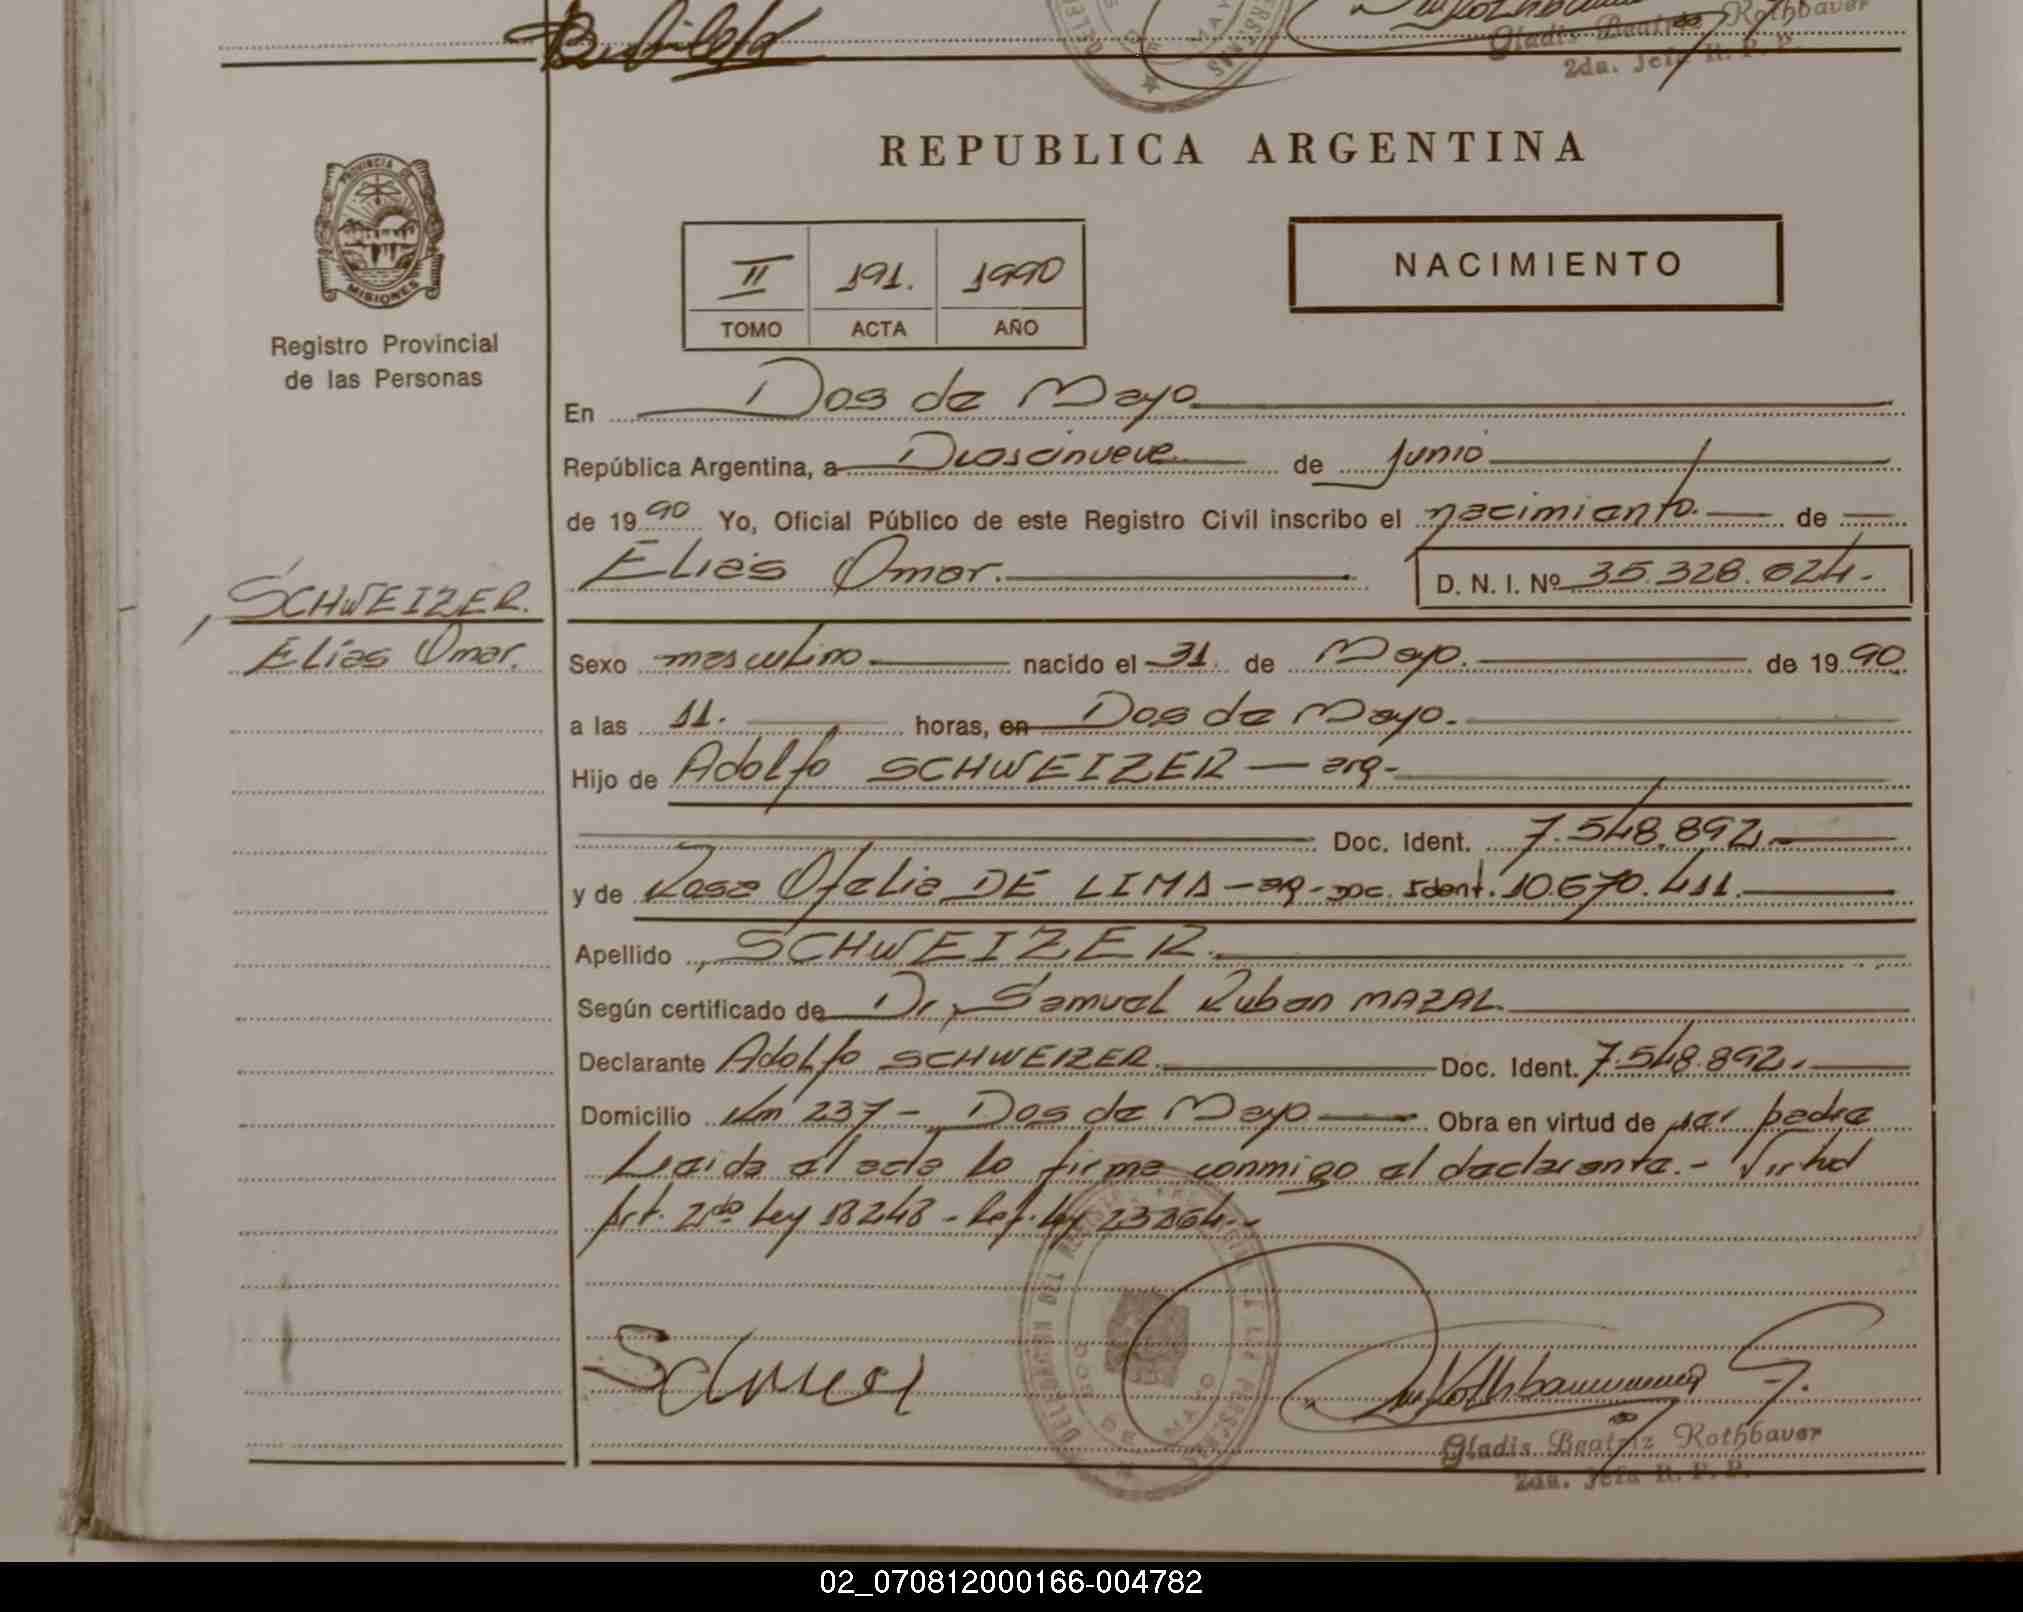 Gladis Beatriz Rothbauer
2da. Jefa R. P. P.
REPUBLICA ARGENTINA
PROVINCIA
MISIONES
Registro Provincial
de las Personas
II 191. 1990
TOMO ACTA AÑO
NACIMIENTO
En Dos de Mayo
República Argentina, a Dioscinueve de Junio
de 1990 Yo, Oficial Público de este Registro Civil inscribo el nacimiento. de
Elias Omar. D. N. I. Nº 35.328.624.
SCHWEIZER.
Elias Omar.
Sexo masculino nacido el 31 de Mayo. de 1990
a las 11. horas, en Dos de Mayo.
Hijo de Adolfo SCHWEIZER — arg-
Doc. Ident. 7.548.892.
y de Rosa Ofelia DE LIMA - arg - Doc. Ident. 10.670.411.
Apellido SCHWEIZER.
Según certificado de Dr, Samuel Ruben MAZAL
Declarante Adolfo SCHWEIZER. Doc. Ident. 7.548.892.
Domicilio Km 237 - Dos de Mayo Obra en virtud de ser padre
Leida el acta la firma conmigo el declarante.- Virtud
Art. 2do Ley 18248 - Ref. Ley 23264.-
DELEGACION DEL REGISTRO CIVIL Y LAS PERSONAS
DOS DE MAYO
Gladis Beatriz Rothbauer
2da. Jefa R. P. P.
02_070812000166-004782